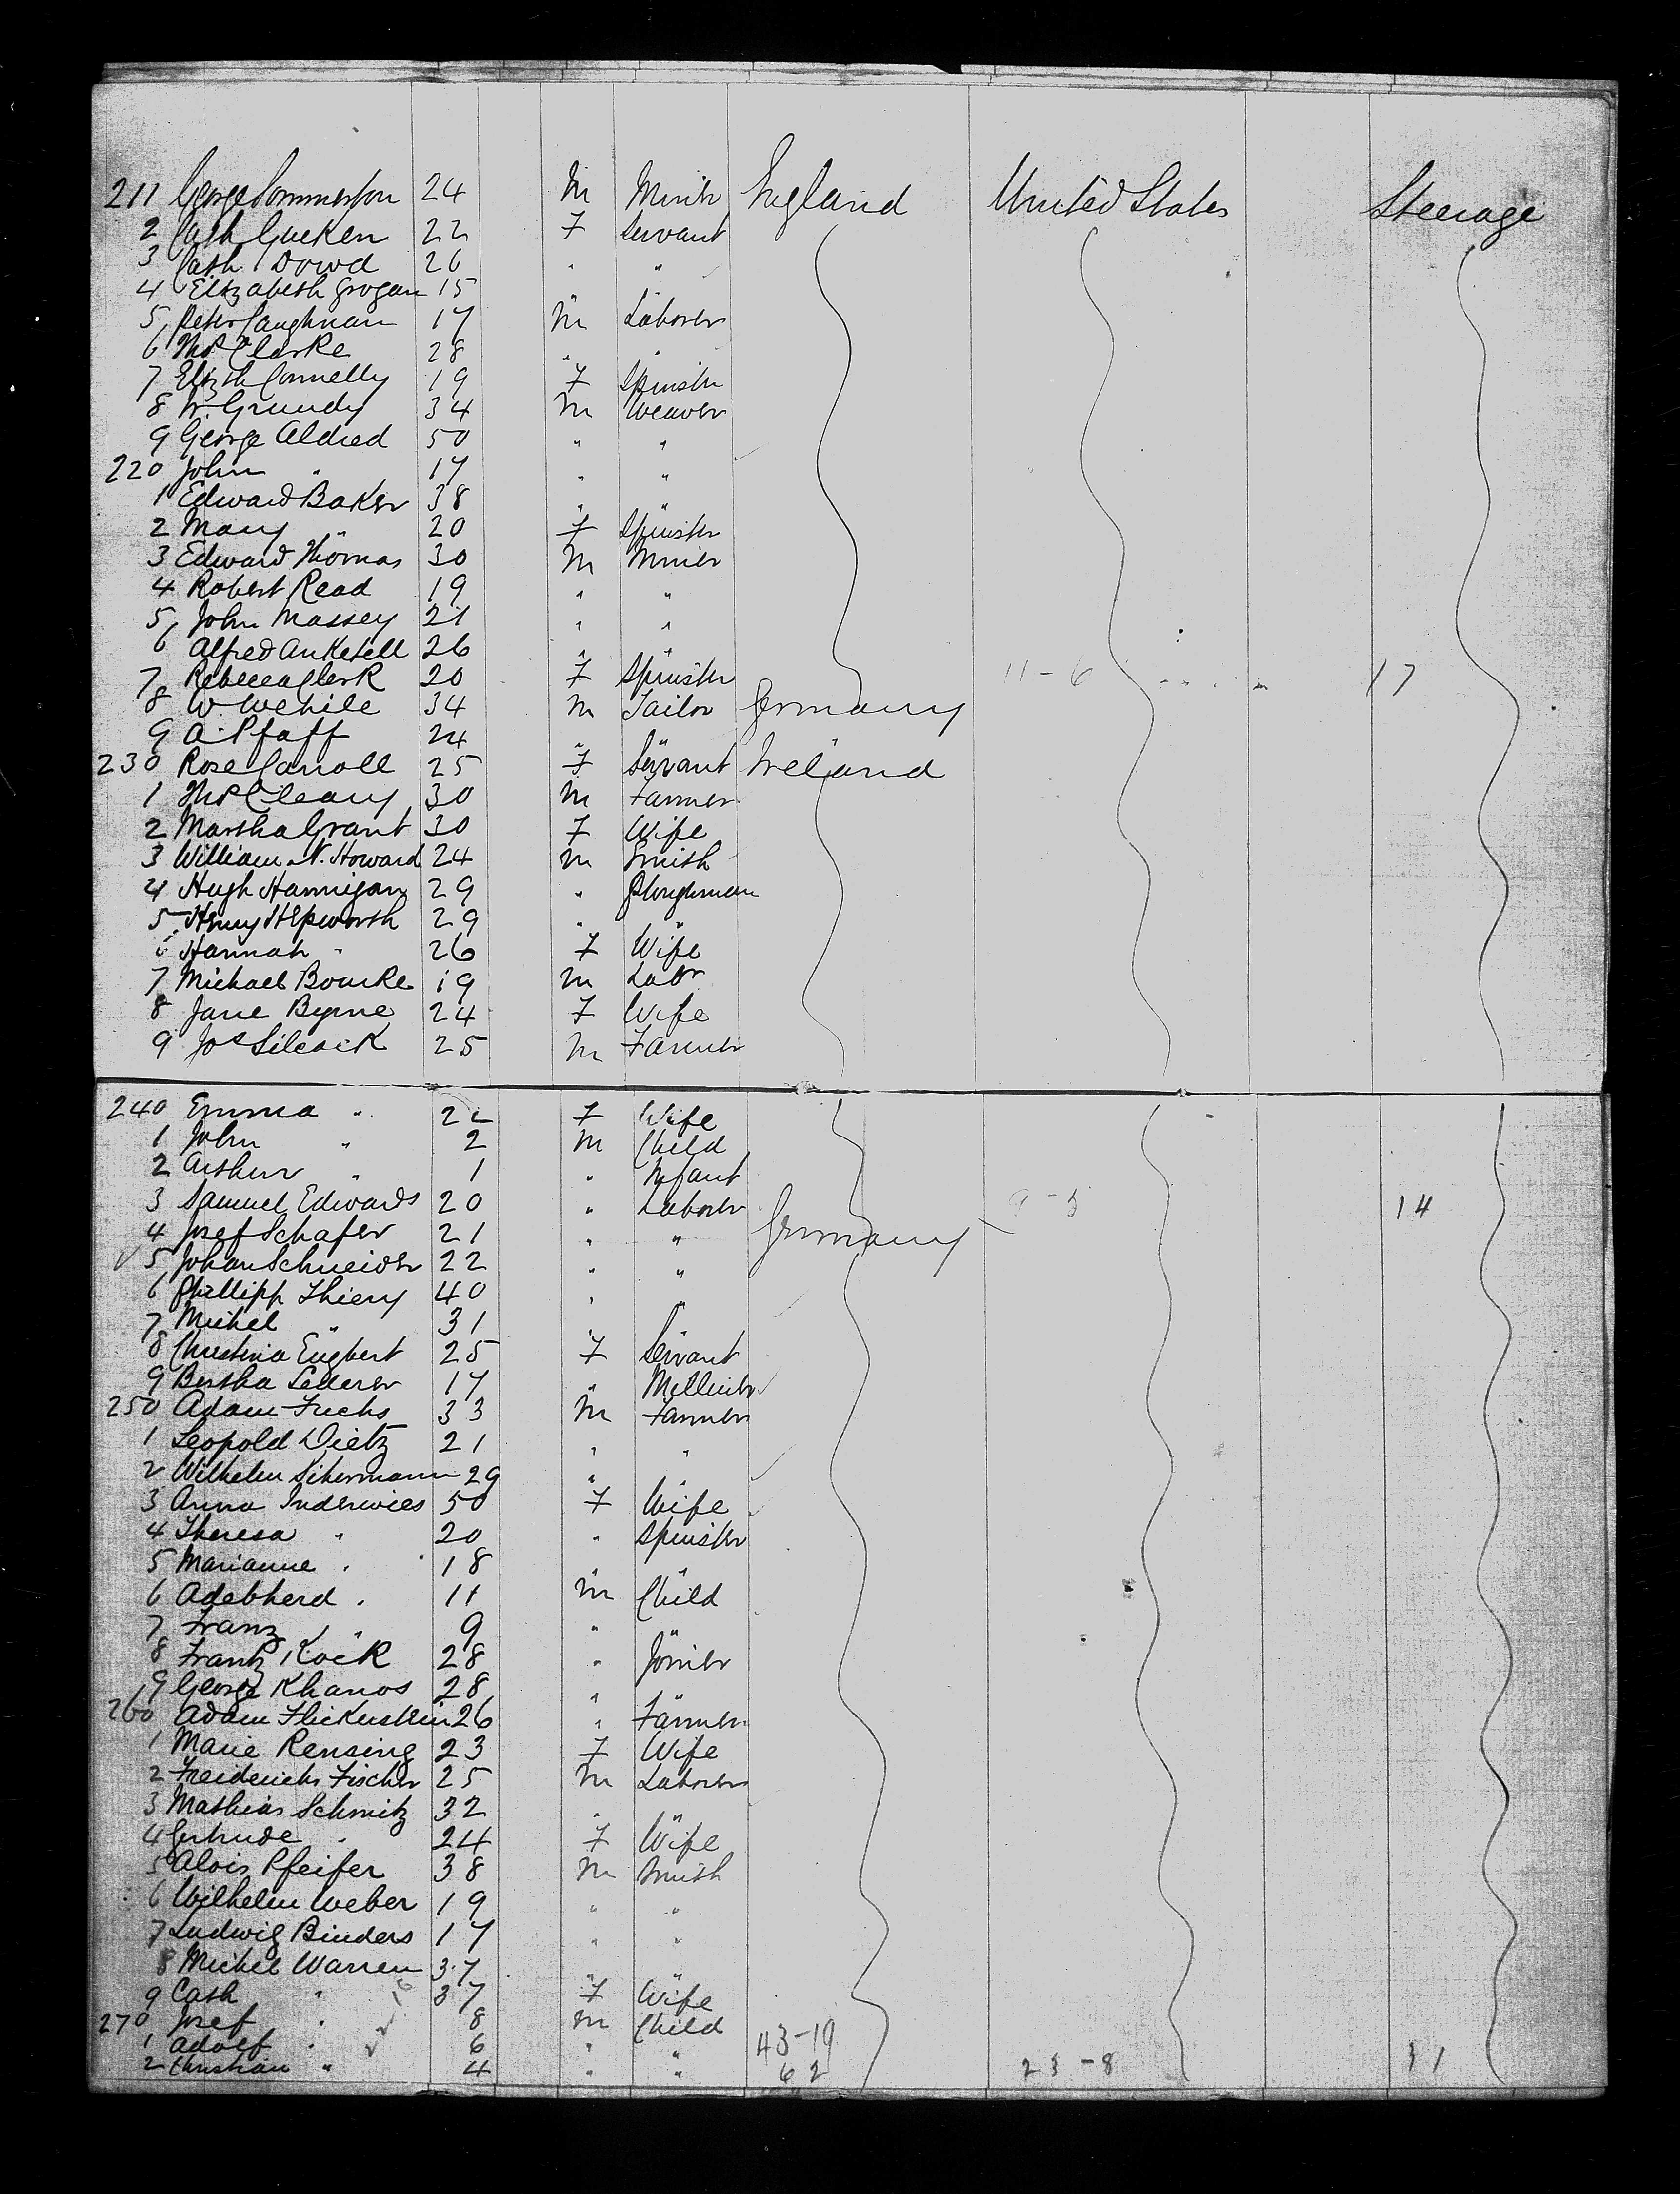 211 George Sommerton 24 M Miner England United States Steerage
2 Cath Gucken 22 F Servant
3 Cath Dowd 26 " "
4 Elizabeth Grogan 15
5 Peter Caughnan 17 M Laborer
6 Thos Clarke 28 " "
7 Elizth Connelly 19 F Spinster
8 W. Grundy 34 M Weaver
9 George Aldred 50 " "
220 John " 17 " "
1 Edward Baker 38 " "
2 Mary " 20 F Spinster
3 Edward Thomas 30 M Miner
4 Robert Read 19 " "
5 John Massey 21 " "
6 Alfred Anketell 26 " "
7 Rebecca Clerk 20 F Spinster 11-6 17
8 W Wehile 34 M Tailor Germany
9 A. Pfaff 24 " "
230 Rose Carroll 25 F Servant Ireland
1 Thos Cleary 30 M Farmer
2 Martha Grant 30 F Wife
3 William N. Howard 24 M Smith
4 Hugh Hannigan 29 " Ploughman
5 Henry Hepworth 29 " "
6 Hannah " 26 F Wife
7 Michael Bourke 19 M Labr
8 Jane Byrne 24 F Wife
9 Jos Silcock 25 M Farmer
240 Emma " 22 F Wife
1 John " 2 M Child
2 Arthur " 1 " Infant
3 Samuel Edwards 20 " Laborer 9-5 14
4 Josef Schafer 21 " " Germany
5 Johan Schneider 22 " "
6 Phillipp Thiery 40 " "
7 Michel " 31 " "
8 Christina Eugbert 25 F Servant
9 Bertha Lederer 17 " Milliner
250 Adam Fuchs 33 M Farmer
1 Leopold Dietz 21 " "
2 Wilhelm Sihermann 29 "
3 Anna Inderwies 50 F Wife
4 Theresa " 20 " Spinster
5 Marianne " 18 " "
6 Adebherd " 11 M Child
7 Franz " 9 " "
8 Frantz Kock 28 " Joiner
9 George Khanos 28 " "
260 Adam Flickenstein 26 " Farmer
1 Marie Rensing 23 F Wife
2 Freiderichs Fischer 25 M Laborer
3 Mathias Schmitz 32 " "
4 Gertrude " 24 F Wife
5 Alois Pfeifer 38 M Smith
6 Wilhelm Weber 19 " "
7 Ludwig Binders 17 " "
8 Michel Warren 37 " "
9 Cath " 37 F Wife
270 Josef " 8 M Child
1 Adolf " 6 " " 43-19
2 Christian " 4 " " 62 23-8 31